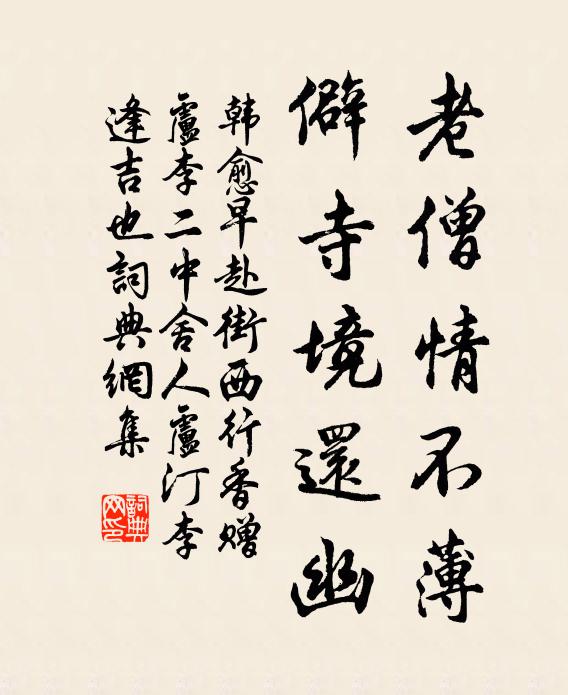 老僧情不薄
僻寺境還幽
韩愈早赴街西行香赠
盧李二中舍人盧汀李
逢吉也詞典網集
詞典
网印